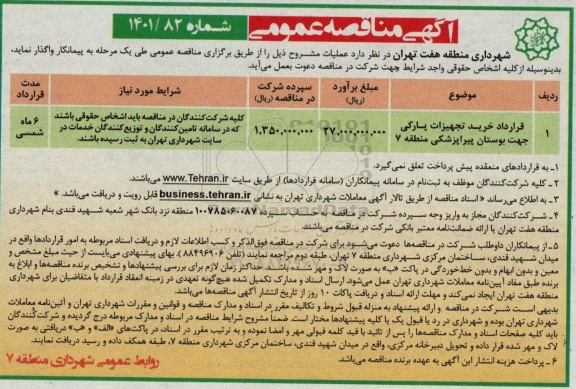 آگهی مناقصه عمومی
شماره ۸۲ /۱۴۰۱
شهرداری منطقه هفت تهران در نظر دارد عملیات مشروح ذیل را از طریق برگزاری مناقصه عمومی طی یک مرحله به پیمانکار واگذار نماید،
بدینوسیله از کلیه اشخاص حقوقی واجد شرایط جهت شرکت در مناقصه دعوت بعمل می‌آید.
ردیف موضوع مبلغ برآورد (ریال) سپرده شرکت در مناقصه (ریال) شرایط مورد نیاز مدت قرارداد
۱ قرارداد خرید تجهیزات پارکی جهت بوستان پیراپزشکی منطقه ۷ ۲۷،۰۰۰،۰۰۰،۰۰۰ ۱،۳۵۰،۰۰۰،۰۰۰ کلیه شرکت‌کنندگان در مناقصه باید اشخاص حقوقی باشند که در سامانه تامین‌کنندگان و توزیع‌کنندگان خدمات در سایت شهرداری تهران به ثبت رسیده باشند. ۶ ماه شمسی
۱ـ به قراردادهای منعقده پیش پرداخت تعلق نمی‌گیرد.
۲ـ کلیه شرکت‌کنندگان موظف به ثبت‌نام در سامانه پیمانکاران (سامانه قراردادها) از طریق سایت www.Tehran.ir می‌باشند.
۳ـ به اطلاع می‌رساند «اسناد مناقصه از طریق تالار آگهی معاملات شهرداری تهران به نشانی business.tehran.ir قابل رویت و دریافت می‌باشد.»
۴ـ شرکت‌کنندگان مجاز به واریز وجه سپرده شرکت در مناقصه به ۱۰۰۷۸۵۰۶۰۰۸۷ منطقه نزد بانک شهر شعبه شهید قندی بنام شهرداری
منطقه هفت تهران یا ارائه ضمانتنامه معتبر بانکی شرکت در مناقصه می‌باشند.
۵ـ از پیمانکاران داوطلب شرکت در مناقصه‌ها دعوت می‌شود برای شرکت در مناقصه فوق‌الذکر و کسب اطلاعات لازم و دریافت اسناد مربوطه به امور قراردادها واقع در
میدان شهید قندی، ساختمان مرکزی شهرداری منطقه ۷ تهران، طبقه دوم مراجعه نمایند (تلفن ۸۸۴۹۶۹۰۶). بهای پیشنهادی می‌بایست از حیث مبلغ مشخص و
معین و بدون ابهام و بدون خط‌خوردگی در پاکت «ب» به صورت لاک و مهر شده باشد. حداکثر زمان لازم برای بررسی پیشنهادها و تشخیص برنده مناقصه‌ها و ابلاغ به
برنده طبق مفاد آیین‌نامه معاملات شهرداری تهران عمل می‌شود. ارسال اسناد و مدارک تکمیل شده هیچ‌گونه تعهدی در زمینه انعقاد قرارداد با متقاضیان برای شهرداری
منطقه هفت تهران ایجاد نمی‌کند و مهلت ارائه اسناد و دریافت پاکات ۱۰ روز از تاریخ انتشار آگهی مناقصه‌ها می‌باشد.
بدیهی است شرکت در مناقصه و ارائه پیشنهاد به منزله قبول شروط و تکالیف مقرر در اسناد و مدارک مناقصه و قوانین و مقررات شهرداری تهران و آئین‌نامه معاملات
شهرداری تهران بوده و شهرداری در رد یا قبول یک یا کلیه پیشنهادها مختار است. ضمناً مشروح شرایط مناقصه در اسناد و مدارک مربوطه درج گردیده و شرکت‌کنندگان
باید کلیه صفحات اسناد و مدارک مناقصه‌ها را پس از تائید با قید کلمه قبولی مهر و امضا نموده و به ترتیب مقرر در اسناد، در پاکت‌های «الف» و «ب» دریافتی به صورت
لاک و مهر شده قرار داده و تحویل دبیرخانه مرکزی، واقع در میدان شهید قندی، ساختمان مرکزی شهرداری منطقه ۷، طبقه همکف داده و رسید دریافت نمایند.
۶ ـ پرداخت هزینه انتشار این آگهی به عهده برنده مناقصه می‌باشد.
روابط عمومی شهرداری منطقه ۷